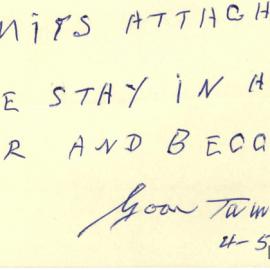 NITS ATTACH
E STAY IN A
R AND BEGG
Goan Tam
4-5